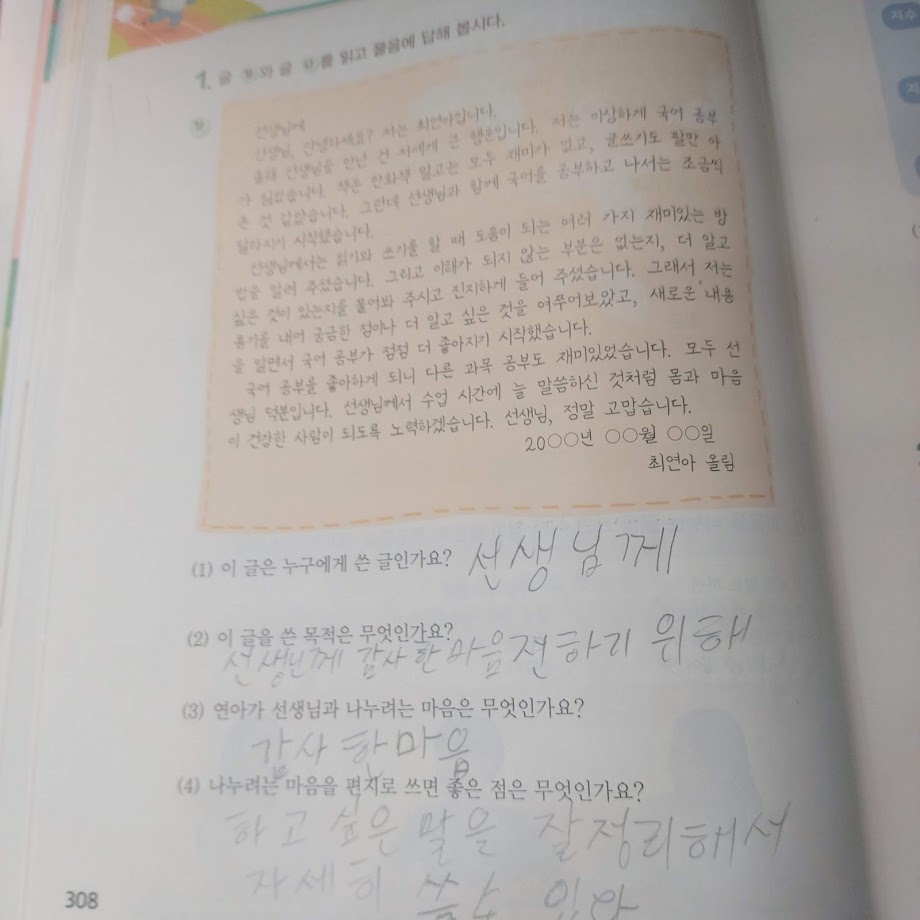 1. 글 ㉮와 글 ㉯를 읽고 물음에 답해 봅시다.
㉮
선생님께
선생님, 안녕하세요? 저는 최연아입니다.
올해 선생님을 만난 건 저에게 큰 행운입니다. 저는 이상하게 국어 공부
가 싫었습니다. 책은 만화책 말고는 모두 재미가 없고, 글쓰기도 팔만 아
픈 것 같았습니다. 그런데 선생님과 함께 국어를 공부하고 나서는 조금씩
달라지기 시작했습니다.
선생님께서는 읽기와 쓰기를 할 때 도움이 되는 여러 가지 재미있는 방
법을 알려 주셨습니다. 그리고 이해가 되지 않는 부분은 없는지, 더 알고
싶은 것이 있는지를 물어봐 주시고 진지하게 들어 주셨습니다. 그래서 저는
용기를 내어 궁금한 점이나 더 알고 싶은 것을 여쭈어보았고, 새로운 내용
을 알면서 국어 공부가 점점 더 좋아지기 시작했습니다.
국어 공부를 좋아하게 되니 다른 과목 공부도 재미있었습니다. 모두 선
생님 덕분입니다. 선생님께서 수업 시간에 늘 말씀하신 것처럼 몸과 마음
이 건강한 사람이 되도록 노력하겠습니다. 선생님, 정말 고맙습니다.
20○○년 ○○월 ○○일
최연아 올림
(1) 이 글은 누구에게 쓴 글인가요? 선생님께
(2) 이 글을 쓴 목적은 무엇인가요?
선생님께 감사한 마음 전하기 위해
(3) 연아가 선생님과 나누려는 마음은 무엇인가요?
감사한마음
(4) 나누려는 마음을 편지로 쓰면 좋은 점은 무엇인가요?
하고 싶은 말을 잘정리해서
자세히
308